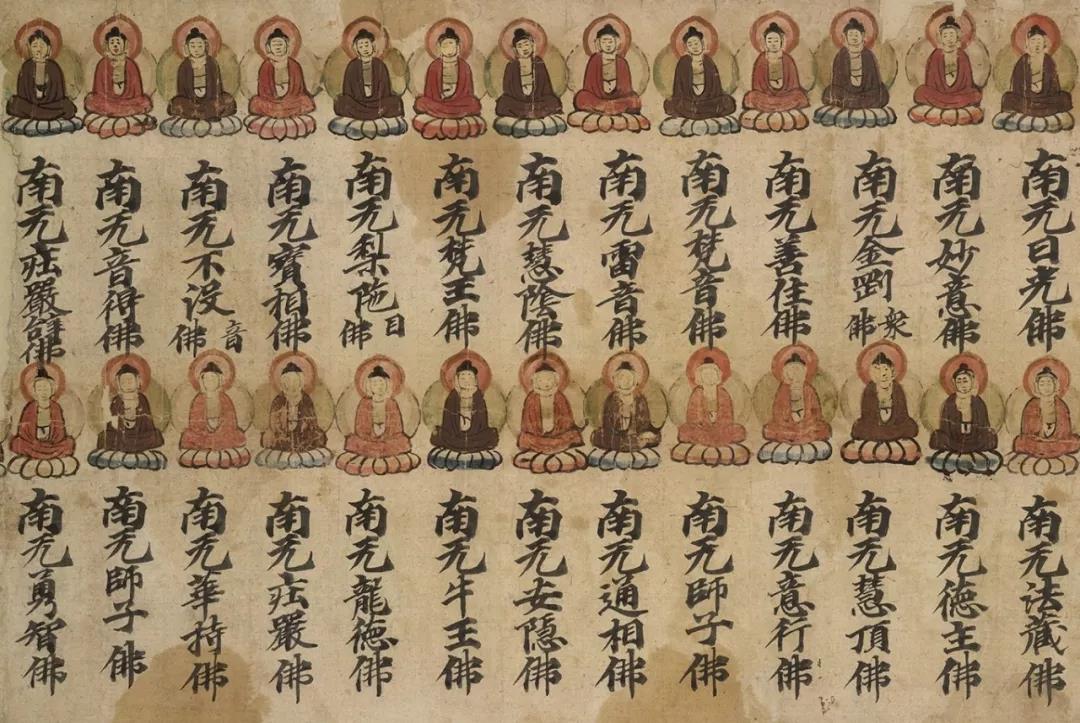 南无日光佛
南无妙意佛
南无金剛衆佛
南无善住佛
南无梵音佛
南无雷音佛
南无慧陰佛
南无梵王佛
南无梨陁目佛
南无寶相佛
南无不没音佛
南无音得佛
南无莊嚴辭佛
南无法藏佛
南无德主佛
南无慧頂佛
南无意行佛
南无師子佛
南无通相佛
南无安隱佛
南无牛王佛
南无龍德佛
南无莊嚴佛
南无華持佛
南无師子佛
南无勇智佛